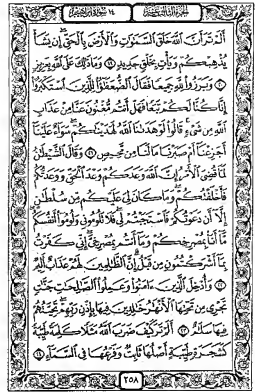 الجزء الثالث عشر ١٤ سورة إبراهيم
أَلَمْ تَرَ أَنَّ ٱللَّهَ خَلَقَ ٱلسَّمَٰوَٰتِ وَٱلْأَرْضَ بِٱلْحَقِّ إِن يَشَأْ
يُذْهِبْكُمْ وَيَأْتِ بِخَلْقٍ جَدِيدٍ ١٩ وَمَا ذَٰلِكَ عَلَى ٱللَّهِ بِعَزِيزٍ
٢٠ وَبَرَزُوا۟ لِلَّهِ جَمِيعًا فَقَالَ ٱلضُّعَفَٰٓؤُا۟ لِلَّذِينَ ٱسْتَكْبَرُوٓا۟
إِنَّا كُنَّا لَكُمْ تَبَعًا فَهَلْ أَنتُم مُّغْنُونَ عَنَّا مِنْ عَذَابِ
ٱللَّهِ مِن شَىْءٍ قَالُوا۟ لَوْ هَدَىٰنَا ٱللَّهُ لَهَدَيْنَٰكُمْ سَوَآءٌ عَلَيْنَآ
أَجَزِعْنَآ أَمْ صَبَرْنَا مَا لَنَا مِن مَّحِيصٍ ٢١ وَقَالَ ٱلشَّيْطَٰنُ
لَمَّا قُضِىَ ٱلْأَمْرُ إِنَّ ٱللَّهَ وَعَدَكُمْ وَعْدَ ٱلْحَقِّ وَوَعَدتُّكُمْ
فَأَخْلَفْتُكُمْ وَمَا كَانَ لِىَ عَلَيْكُم مِّن سُلْطَٰنٍ
إِلَّآ أَن دَعَوْتُكُمْ فَٱسْتَجَبْتُمْ لِى فَلَا تَلُومُونِى وَلُومُوٓا۟ أَنفُسَكُم
مَّآ أَنَا۠ بِمُصْرِخِكُمْ وَمَآ أَنتُم بِمُصْرِخِىَّ إِنِّى كَفَرْتُ
بِمَآ أَشْرَكْتُمُونِ مِن قَبْلُ إِنَّ ٱلظَّٰلِمِينَ لَهُمْ عَذَابٌ أَلِيمٌ
٢٢ وَأُدْخِلَ ٱلَّذِينَ ءَامَنُوا۟ وَعَمِلُوا۟ ٱلصَّٰلِحَٰتِ جَنَّٰتٍ
تَجْرِى مِن تَحْتِهَا ٱلْأَنْهَٰرُ خَٰلِدِينَ فِيهَا بِإِذْنِ رَبِّهِمْ تَحِيَّتُهُمْ
فِيهَا سَلَٰمٌ ٢٣ أَلَمْ تَرَ كَيْفَ ضَرَبَ ٱللَّهُ مَثَلًا كَلِمَةً طَيِّبَةً
كَشَجَرَةٍ طَيِّبَةٍ أَصْلُهَا ثَابِتٌ وَفَرْعُهَا فِى ٱلسَّمَآءِ ٢٤
٢٥٨